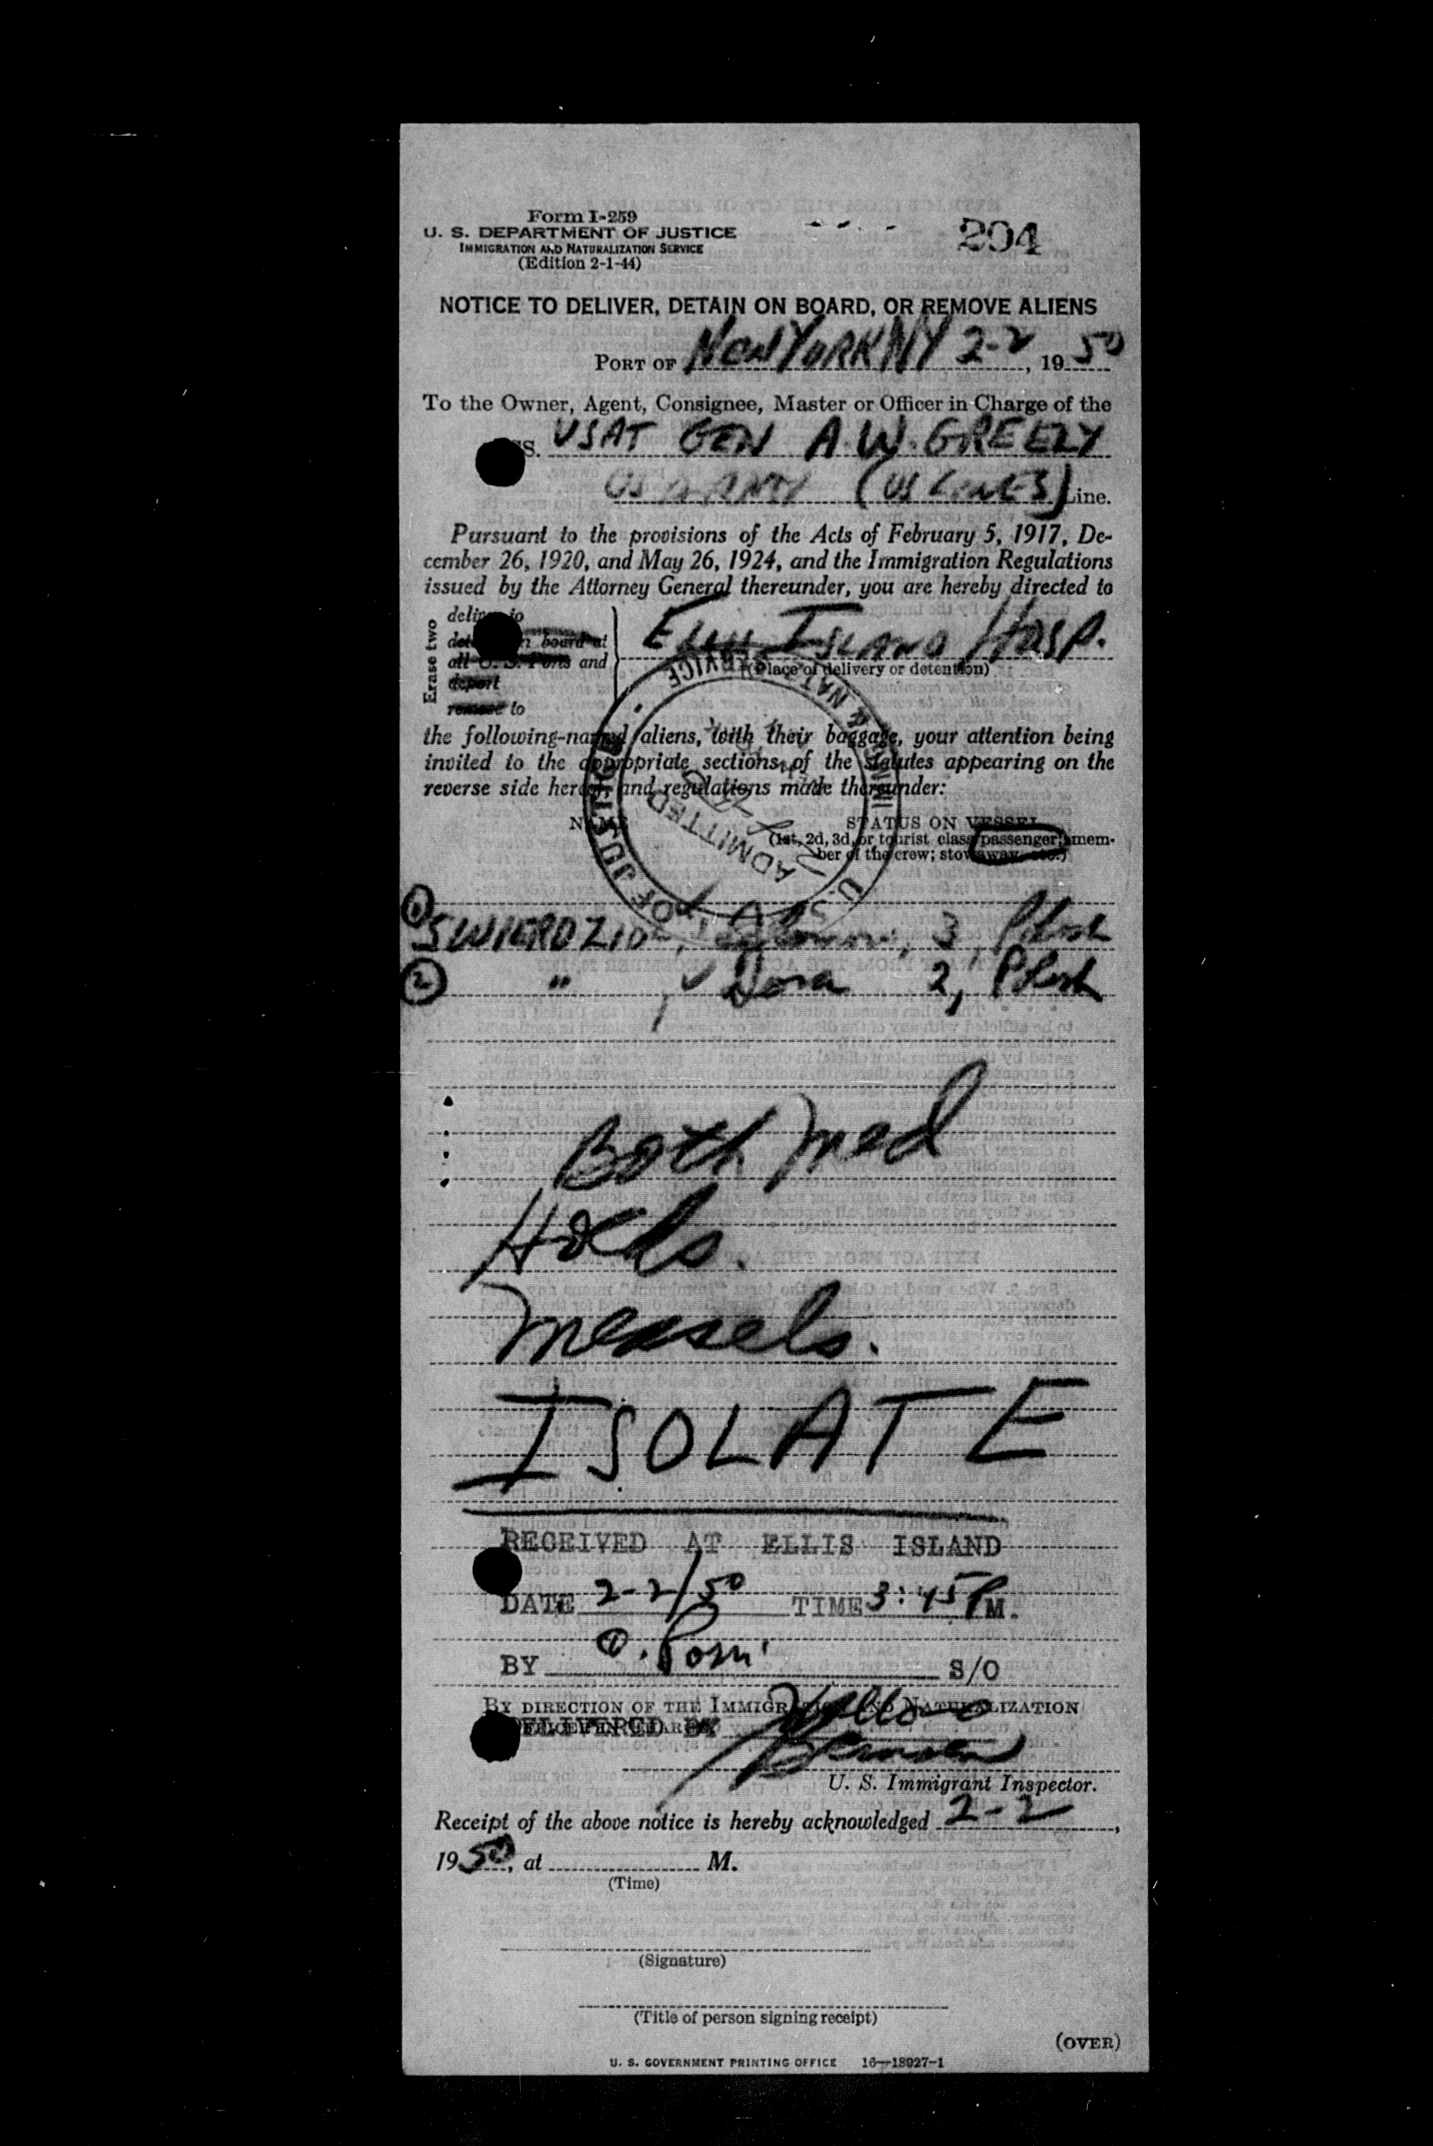 Form I-259
U. S. DEPARTMENT OF JUSTICE
IMMIGRATION AND NATURALIZATION SERVICE
(Edition 2-1-44)
294
NOTICE TO DELIVER, DETAIN ON BOARD, OR REMOVE ALIENS
PORT OF NEW YORK NY 2-2, 1950
To the Owner, Agent, Consignee, Master or Officer in Charge of the
SS. USAT GEN A.W. GREELY
US ARMY (US LINES) Line.
Pursuant to the provisions of the Acts of February 5, 1917, De-
cember 26, 1920, and May 26, 1924, and the Immigration Regulations
issued by the Attorney General thereunder, you are hereby directed to
Erase two
deliver to
detain on board at
all U. S. Ports and
deport
remove to
ELLIS ISLAND HOSP.
(Place of delivery or detention)
the following-named aliens, with their baggage, your attention being
invited to the appropriate sections of the statutes appearing on the
reverse side hereof and regulations made thereunder:
NAME
STATUS ON VESSEL
(1st, 2d, 3d, or tourist class passenger; mem-
ber of the crew; stowaway, etc.)
OF JUSTICE IMMI. & NAT. SERVICE U.
ADMITTED
1 SWIERDZIOL, 3, Polish
2 " , Dora 2, Polish
Both Med
Holds.
Measels.
ISOLATE
RECEIVED AT ELLIS ISLAND
DATE 2-2/50 TIME 3:45 P M.
BY S/O
BY DIRECTION OF THE IMMIGRATION AND NATURALIZATION
DELIVERED BY
U. S. Immigrant Inspector.
Receipt of the above notice is hereby acknowledged 2-2,
1950, at M.
(Time)
(Signature)
(Title of person signing receipt)
(OVER)
U. S. GOVERNMENT PRINTING OFFICE 16—18927-1